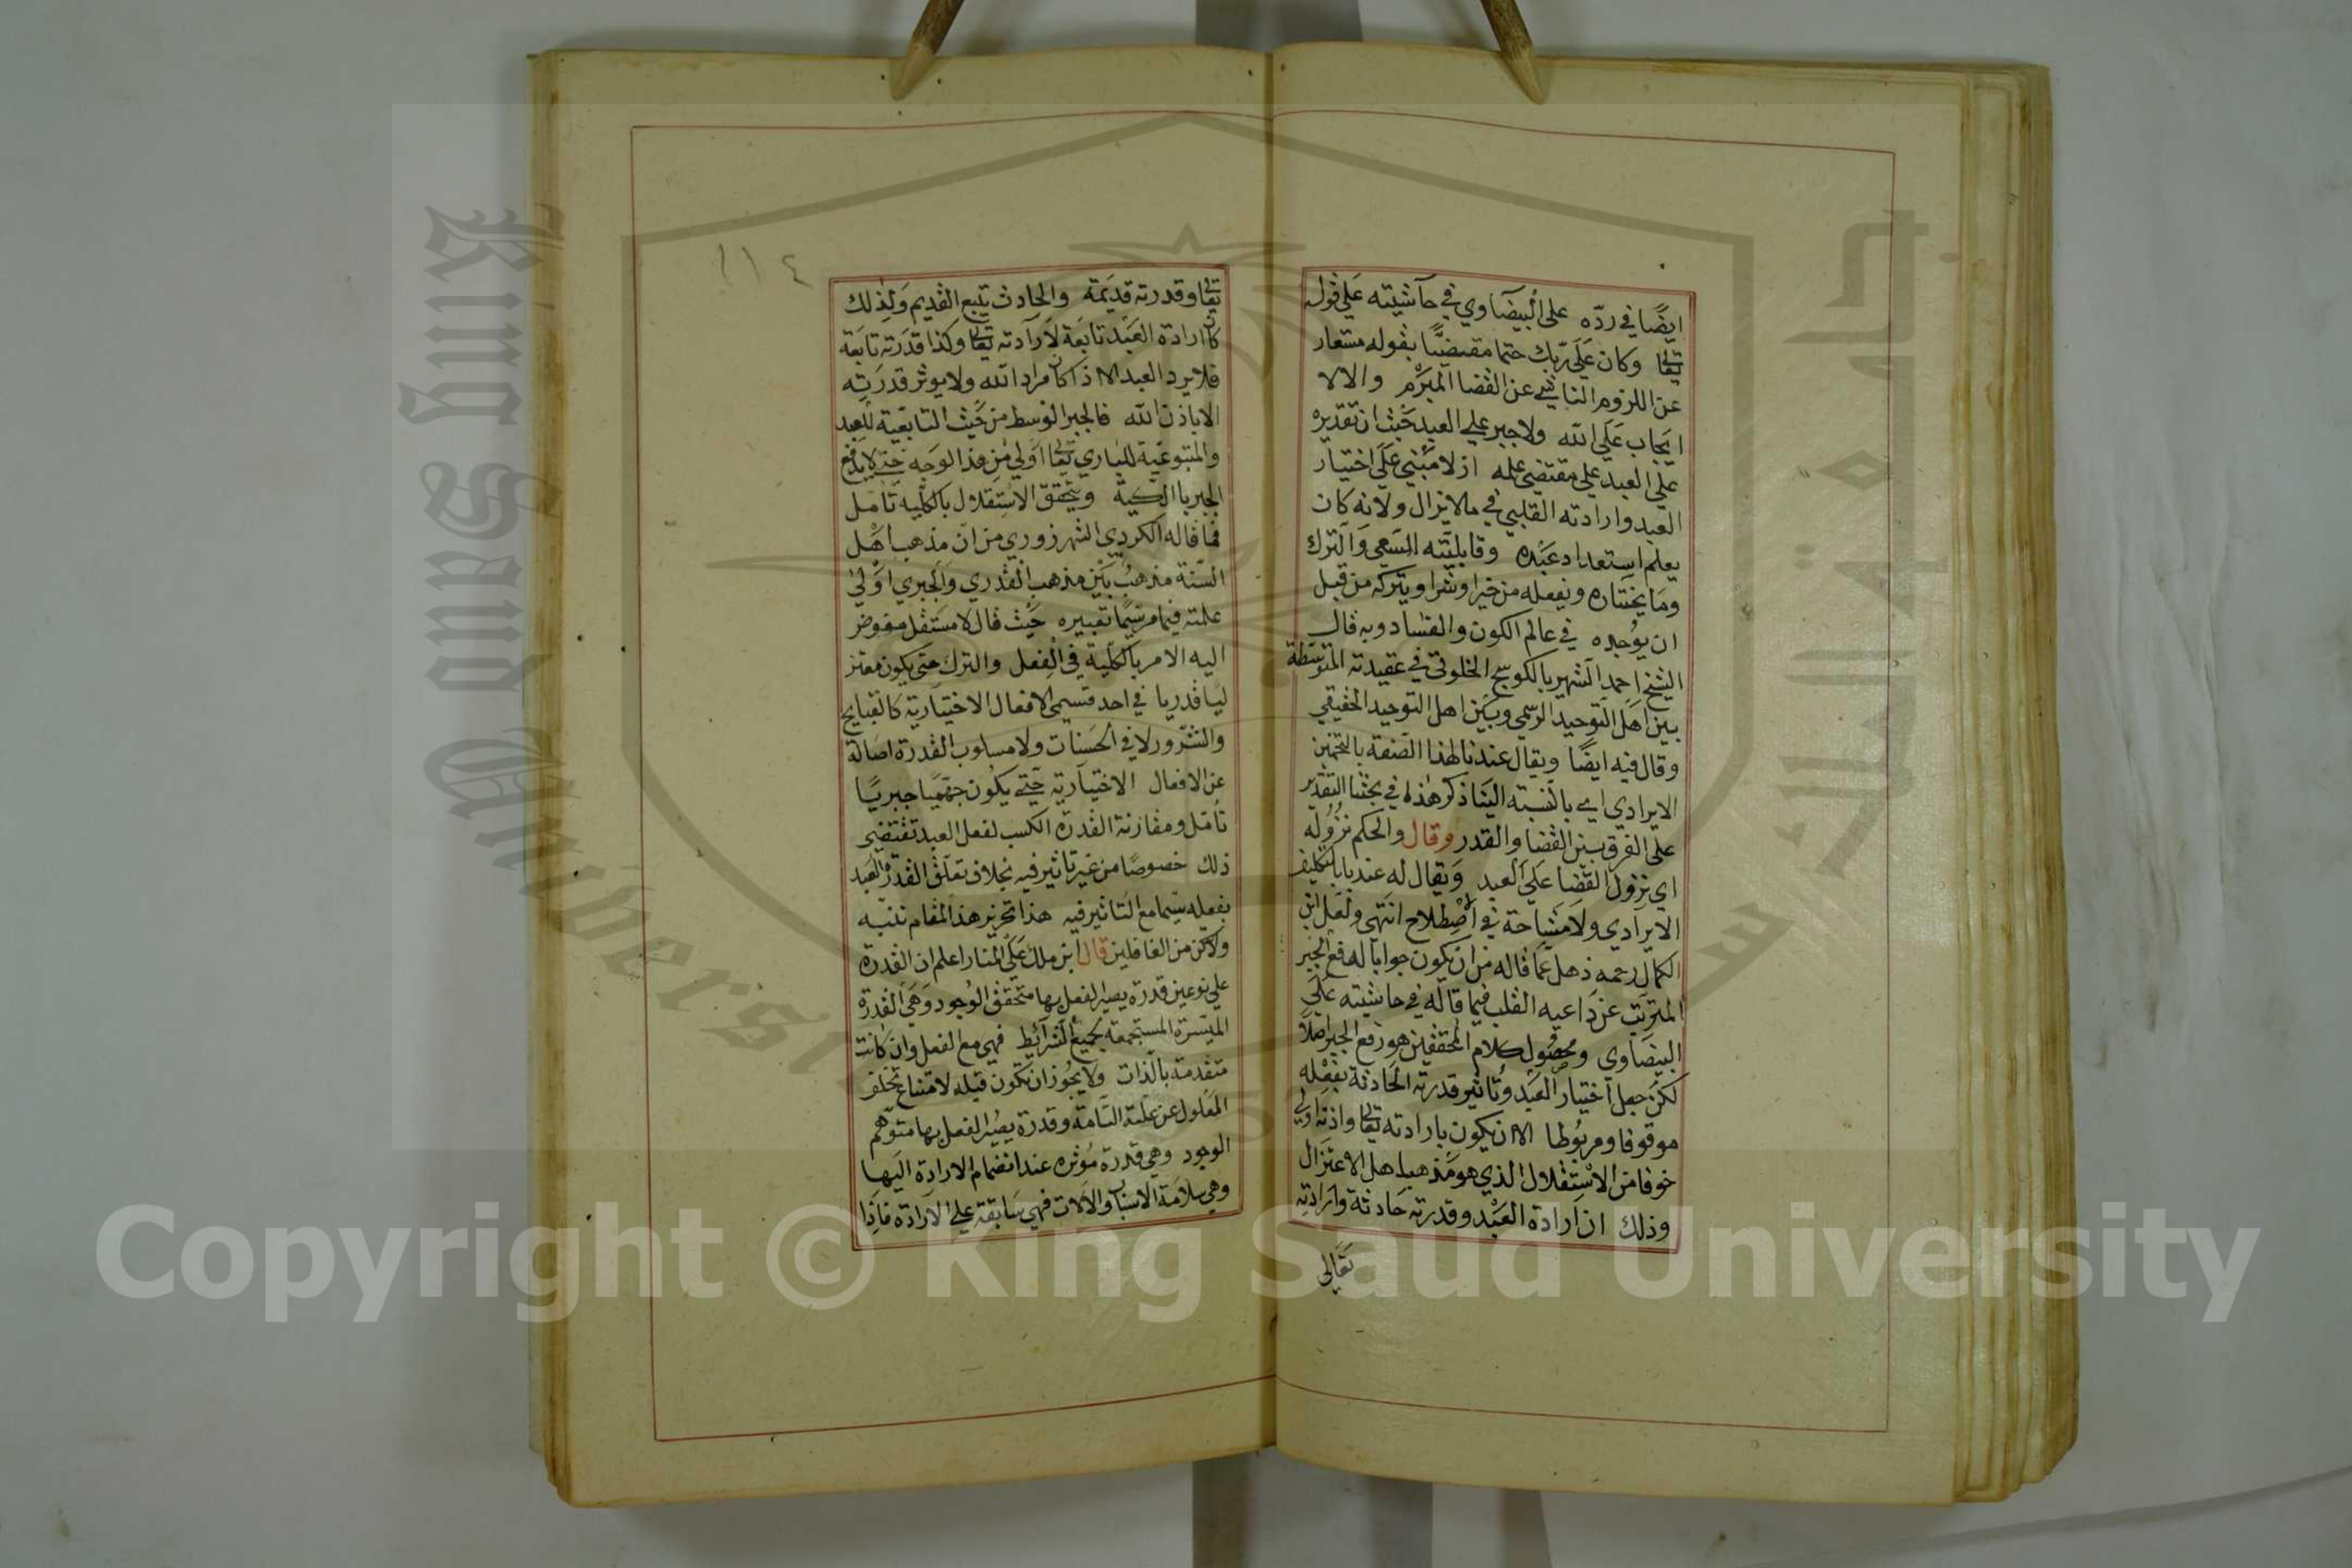 ايضًا في ردّه على البيضاوي في حاشيته على قوله
تعالى وكان على ربك حتما مقضيًّا بقوله مستعار
عن اللزوم الناشي عن القضا المبرم والا لا
ايجاب على الله ولا جبر على العبد حيث ان تقديره
على العبد على مقتضى علمه ازلا مبني على اختيار
العبد وارادته القلبي في ما لا يزال ولانه كان
يعلم استعداد عبده وقابليته السعي والترك
وما يختاره ويفعله من خير او شر او يتركه من قبل
ان يوجده في عالم الكون والفساد وبه قال
الشيخ احمد الشهير بالكوسج الخلوتي في عقيدته المتوسطة
بين اهل التوحيد الرسمي وبين اهل التوحيد الحقيقي
وقال فيه ايضًا ويقال عندنا لهذا الصنعة بالتخمين
الايرادي اي بالنسبته الينا ذكر هذا في بحثنا التقدير
على الفرق بين القضا والقدر وقال والحكم نزوله
اي نزول القضا على العبد ويقال له عند بابا التكليف
الايرادي ولا مشاحة في اصطلاح انتهى ولعل ابن
الكمال رحمه ذهل عما قاله من ان يكون جوابا له فع الجبر
المترتب عن داعيه القلب فيما قاله في حاشيته على
البيضاوي ومحصول كلام المحققين هو رفع الجبر اصلا
لكن جعل اختيار العبد وتاثير قدرته الحادثة بفعله
موقوفا ومربوطا الا ان يكون بارادته تعالى واذنه اولى
خوفا من الاستقلال الذي هو مذهب اهل الاعتزال
وذلك ان ارادة العبد وقدرته حادثة وارادته
تعالى
١١٤
تعالى وقدرته قديمة والحادث يتبع القديم ولذلك
كان ارادة العبد تابعة لارادته تعالى وكذا قدرته تابعة
فلا يرد العبد الا اذا كان مراد الله ولا يوثر قدرته
الا باذن الله فالجبر الوسط من حيث التابعية للعبد
والمتبوعية للباري تعالى اولى من هذا الوجه حتى لا يدفع
الجبر بالكية ويتحقق الاستقلال بالكلية تامل
فما قاله الكردي الشهرزوري من ان مذهب اهل
السنة مذهب بين مذهب القدري والجبري اولى
علمته فيما مر سيما تعبيره حيث قال لا مستقل مفوض
اليه الامر بالكلية في الفعل والترك حتى يكون معتز
ليا قدريا في احد قسيمي الافعال الاختيارية كالقبايح
والشرور لا في الحسنات ولا مسلوب القدرة اصالة
عن الافعال الاختيارية حتى يكون جهميا جبريا
تامل ومقارنة القدرة الكسب لفعل العبد تقتضي
ذلك خصوصًا من غير تاثير فيه بخلاف تعلق القدرة العبد
بفعله سيما مع التاثير فيه هذا تحرير هذا المقام تنبه
ولا تكن من الغافلين قال ابن ملك على المنار اعلم ان القدرة
على نوعين قدرة يصير الفعل بها متحقق الوجود وهي القدرة
الميسرة المستجمعة بجميع الشرائط فهي مع الفعل وان كانت
متقدمة بالذات ولا يجوز ان تكون قبله لامتناع تخلف
المعلول عن علته التامة وقدرة يصير الفعل بها متوهم
الوجود وهي قدرة مؤثره عند انضمام الارادة اليها
وهي سلامة الاسباب والالات فهي سابقة على الارادة فاذا
Copyright © King Saud University
King Saud University